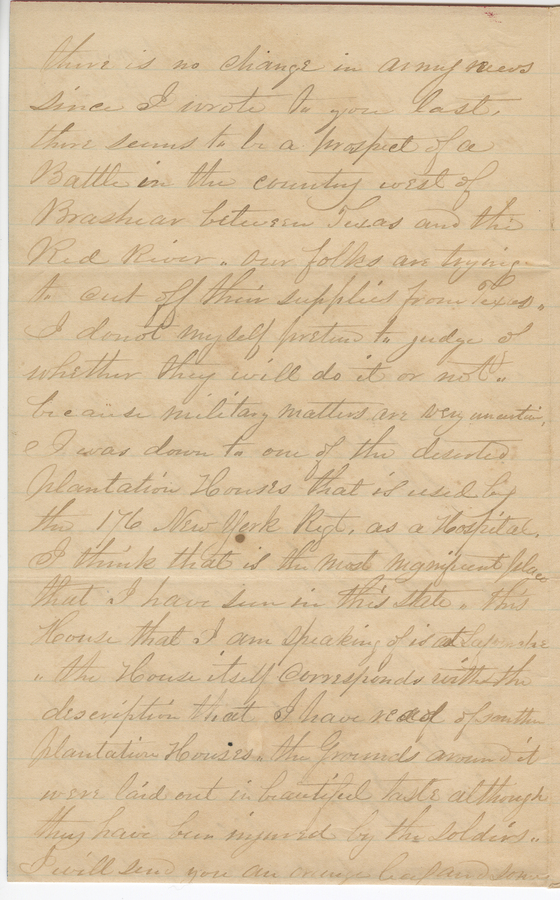 there is no change in army news
since I wrote to you last.
there seems to be a prospect of a
Battle in the country west of
Brashear between Texas and the
Red River " our folks are trying
to cut off their supplies from Texas "
I donot myself pretend to judge
whether they will do it or not "
because military matters are very uncertin,
I was down to one of the deserted
plantation Houses that is used by
the 176 New York Regt. as a Hospital.
I think that is the most magnificent place
that I have seen in this state " this
House that I am speaking of is at
" the House itself Corresponds with the
description that I have read of southern
plantation Houses " the Grounds around it
were laid out in beautiful taste although
they have been injured by the soldirs "
I will send you an orange leaf and some